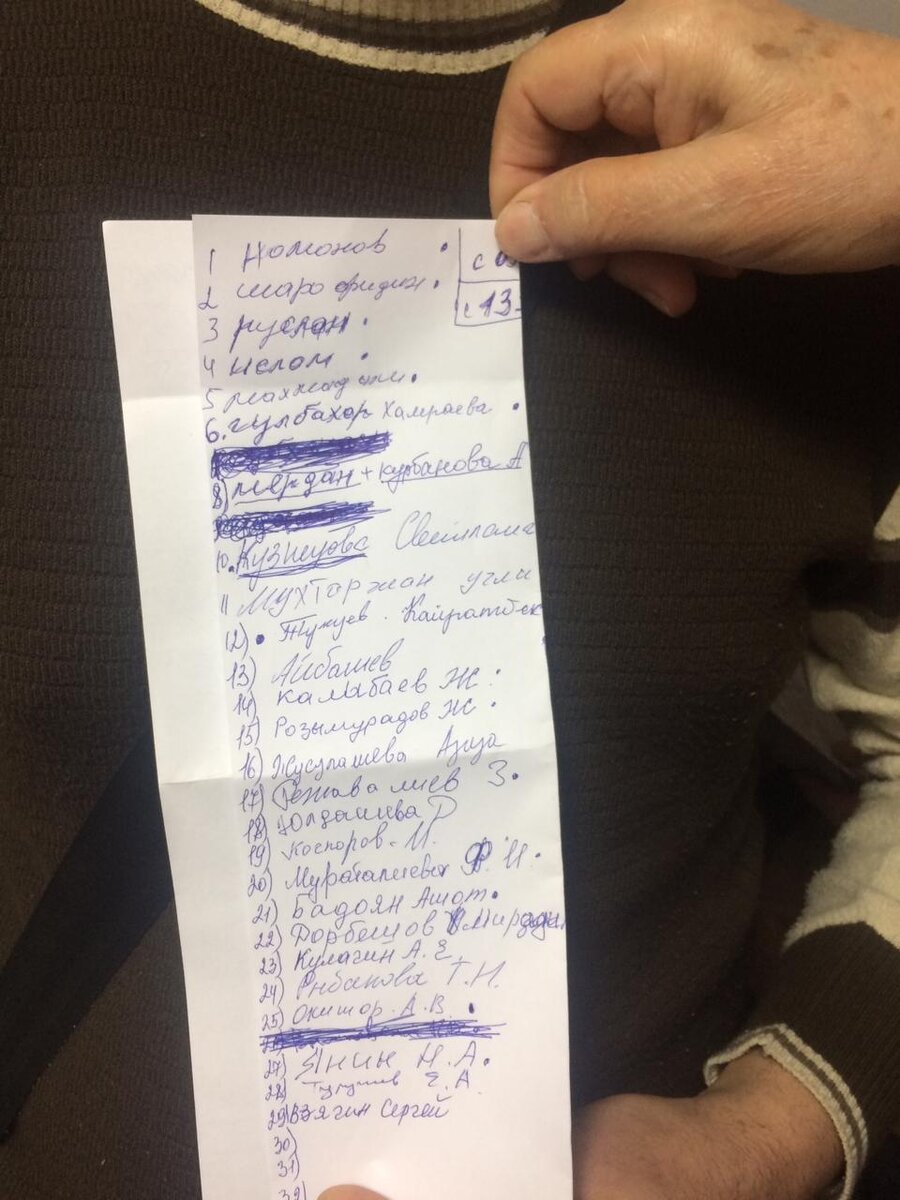 1 Номонов
с
2 шарофидин.
с 13
3 руслан.
4 ислом.
5
6. гулбахор Хамраева.
8) мердан + курбанова А
10. Кузнецова Светлана
11 Мухтаржан угли
12). Тукуев. Кайратбек
13) Айбашев
14) Калыбаев Ж.
15) Розымурадов Ж.
16) Жусупашева Азиза
17) Режавалиев З.
18) Юлдашева Р
19) Каспоров. М.
20) Мураталиева Ф. И.
21) Бадоян Ашот.
22) Дорбешов
23) Кулагин А. Е.
24) Рыбакова Т. Н.
25) А. В.
27) Янин Н. А.
28) Е. А.
29) Взягин Сергей
30)
31)
32)